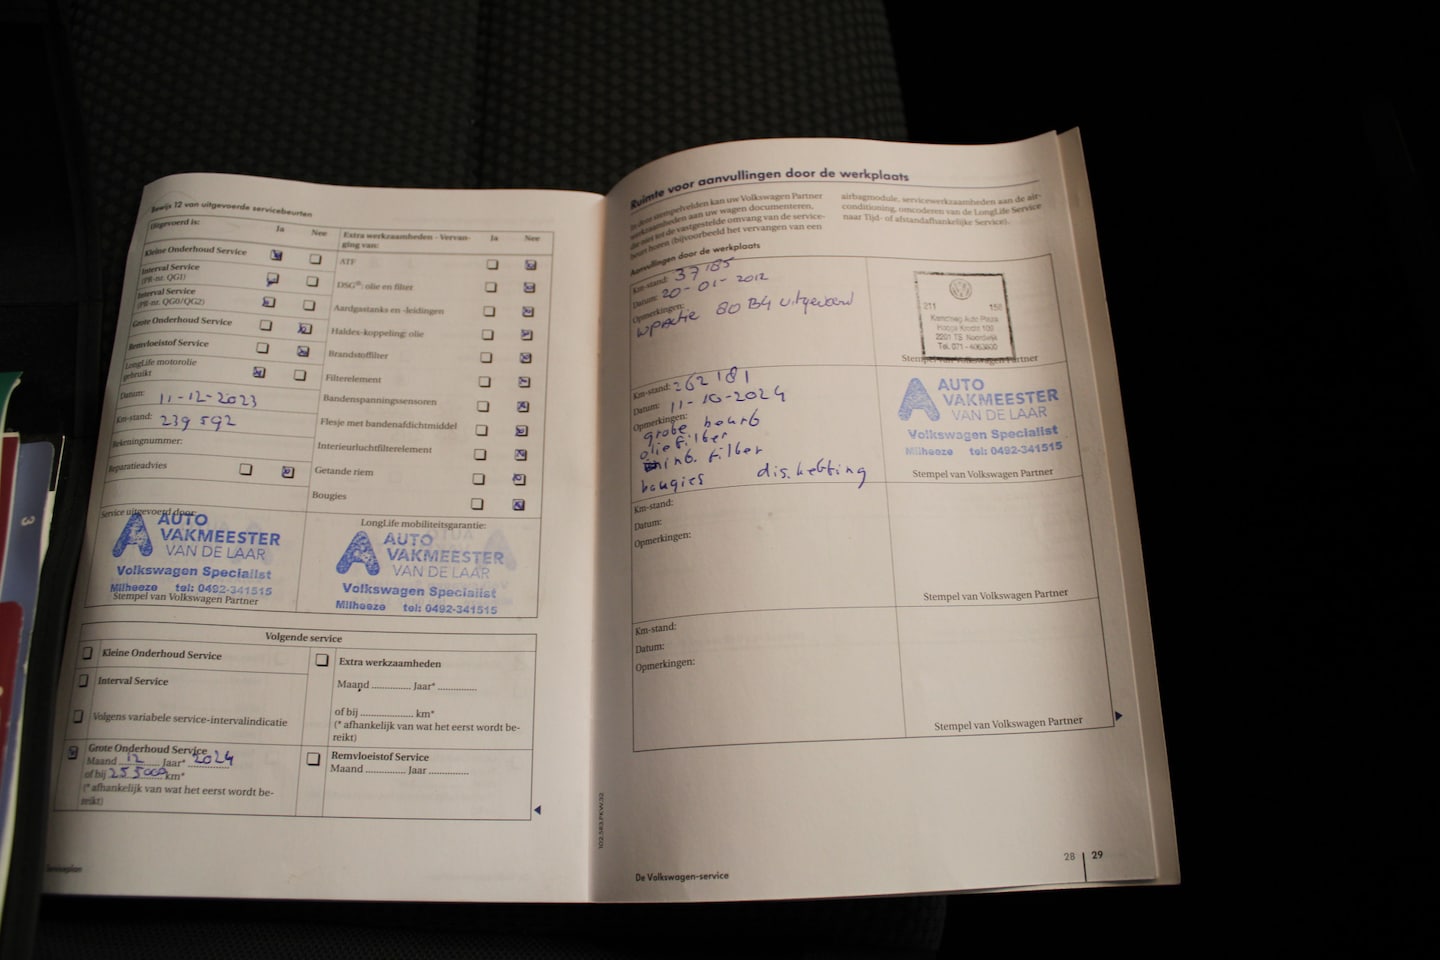 Bewijs 12 van uitgevoerde servicebeurten
Uitgevoerd is:
Ja
Nee
Kleine Onderhoud Service
Interval Service
(PR-nr. QG1)
Interval Service
(PR-nr. QG0/QG2)
Grote Onderhoud Service
Remvloeistof Service
LongLife motorolie
gebruikt
Datum: 11-12-2023
Km-stand: 239 592
Rekeningnummer:
Reparatieadvies
Extra werkzaamheden - Vervan-
ging van:
Ja
Nee
ATF
DSG®: olie en filter
Aardgastanks en -leidingen
Haldex-koppeling: olie
Brandstoffilter
Filterelement
Bandenspanningssensoren
Flesje met bandenafdichtmiddel
Interieurluchtfilterelement
Getande riem
Bougies
Service uitgevoerd door:
AUTO
VAKMEESTER
VAN DE LAAR
Volkswagen Specialist
Milheeze tel: 0492-341515
Stempel van Volkswagen Partner
LongLife mobiliteitsgarantie:
AUTO
VAKMEESTER
VAN DE LAAR
Volkswagen Specialist
Milheeze tel: 0492-341515
Volgende service
Kleine Onderhoud Service
Interval Service
Volgens variabele service-intervalindicatie
Grote Onderhoud Service
Maand 12 Jaar* 2024
of bij 255000 km*
(* afhankelijk van wat het eerst wordt be-
reikt)
Extra werkzaamheden
Maand .............. Jaar* ..............
of bij ................... km*
(* afhankelijk van wat het eerst wordt be-
reikt)
Remvloeistof Service
Maand .............. Jaar ..............
Serviceplan
102.5R3.PKW.32
Ruimte voor aanvullingen door de werkplaats
In deze stempelvelden kan uw Volkswagen Partner
werkzaamheden aan uw wagen documenteren,
die niet tot de vastgestelde omvang van de service-
beurt horen (bijvoorbeeld het vervangen van een
airbagmodule, servicewerkzaamheden aan de air-
conditioning, omcoderen van de LongLife Service
naar Tijd- of afstandafhankelijke Service).
Aanvullingen door de werkplaats
Km-stand: 37185
Datum: 20-01-2012
Opmerkingen:
80B4 uitgevoerd
211 158
Hooge Krocht 100
2201 TS Noordwijk
Stempel van Volkswagen Partner
Km-stand: 262181
Datum: 11-10-2024
Opmerkingen:
grote beurt
oliefilter
int. filter
bougies dis. ketting
AUTO
VAKMEESTER
VAN DE LAAR
Volkswagen Specialist
Milheeze tel: 0492-341515
Stempel van Volkswagen Partner
Km-stand:
Datum:
Opmerkingen:
Stempel van Volkswagen Partner
Km-stand:
Datum:
Opmerkingen:
Stempel van Volkswagen Partner
De Volkswagen-service
28 29
3